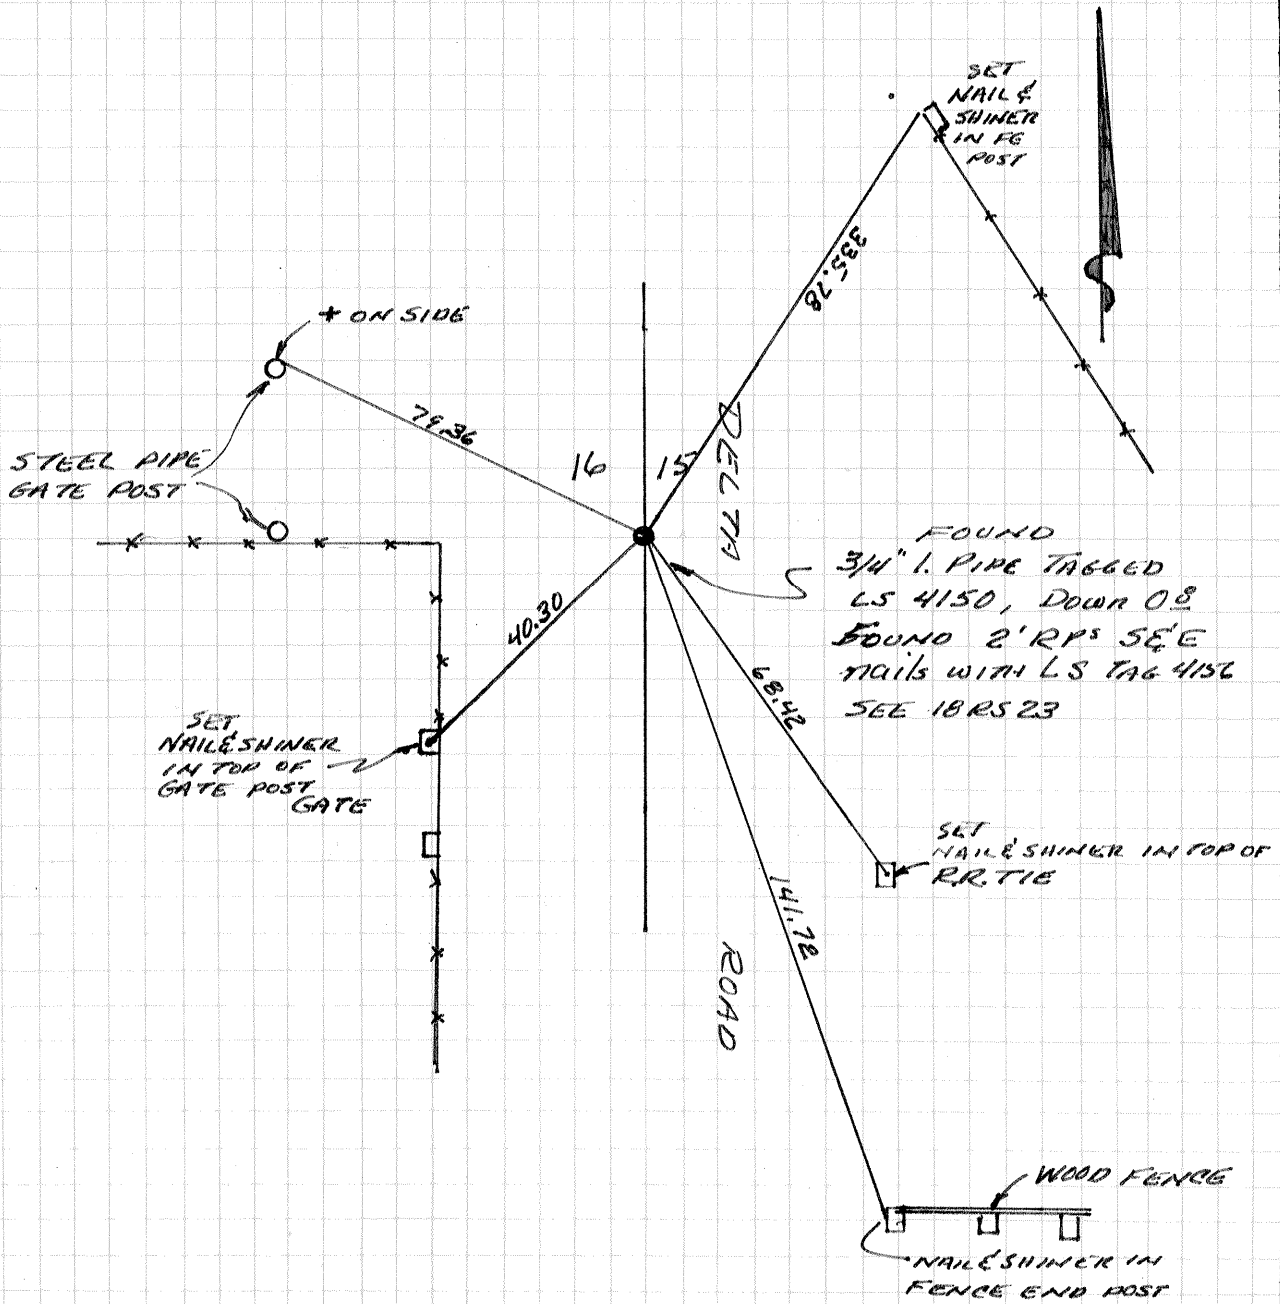 SET
NAIL &
SHINER
IN FE
POST
335.78
+ ON SIDE
79.36
16
15
DELTA
STEEL PIPE
GATE POST
FOUND
3/4" I. PIPE TAGGED
LS 4150, DOWN 0.8
FOUND 2' RPs S&E
nails WITH LS TAG 4156
SEE 18 RS 23
40.30
68.42
SET
NAIL & SHINER
IN TOP OF
GATE POST
GATE
SET
NAIL & SHINER IN TOP OF
R.R. TIE
141.78
ROAD
WOOD FENCE
NAIL & SHINER IN
FENCE END POST